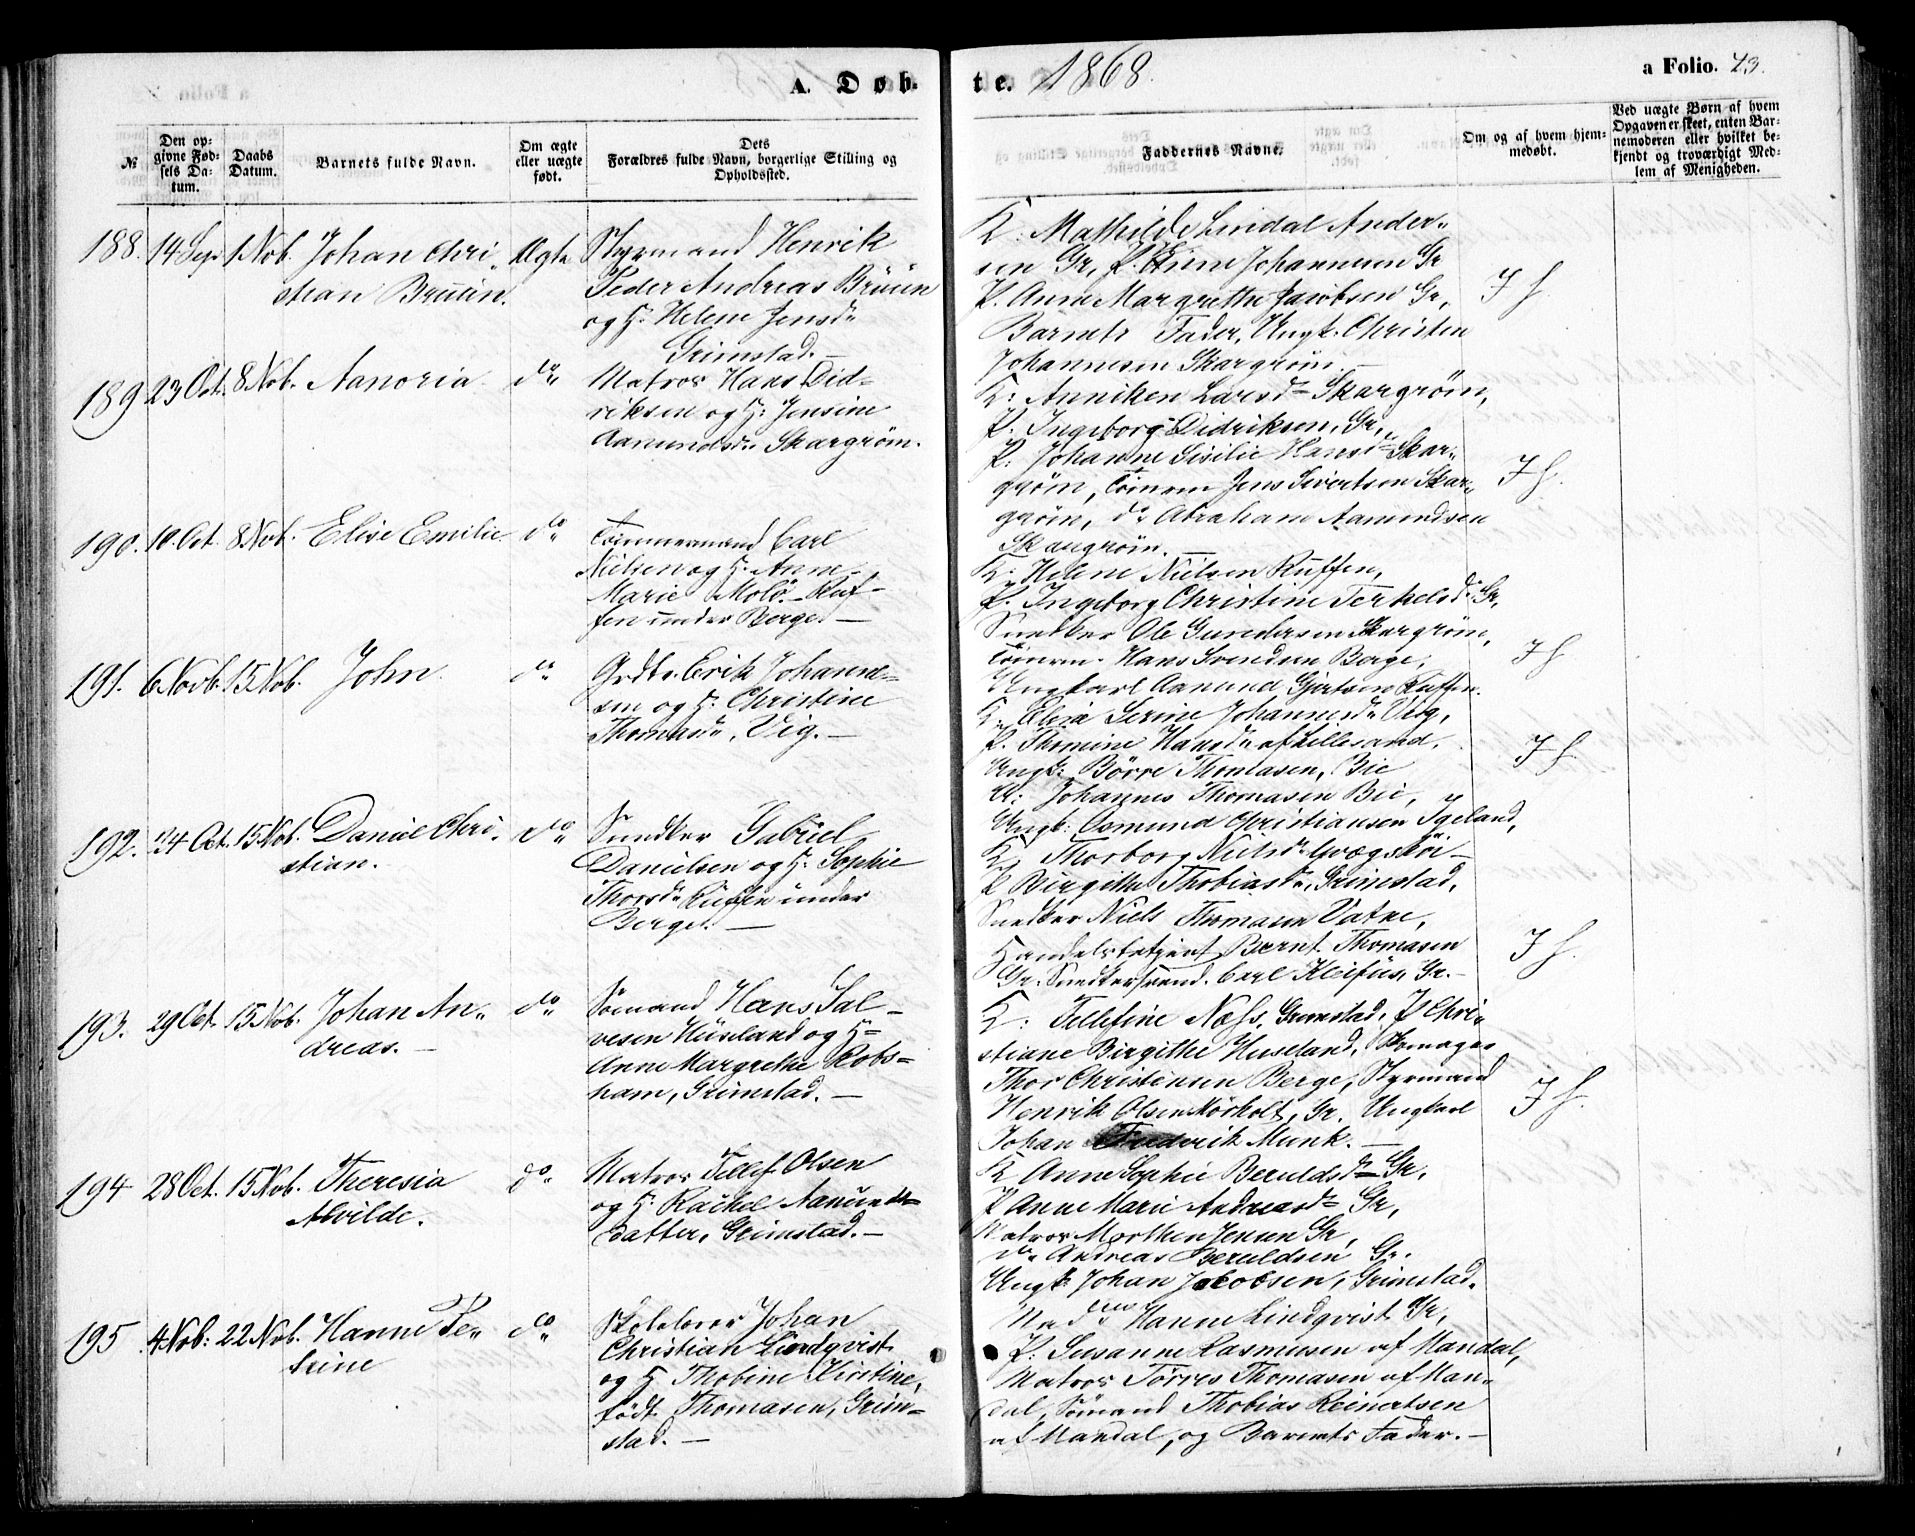 A. Døb-
te. 1868.
a Folio. 43.
№
Den op-
givne Fød-
sels Da-
tum.
Daabs
Datum.
Barnets fulde Navn.
Om ægte
eller uægte
født.
Dets
Forældres fulde Navn, borgerlige Stilling og
Opholdssted.
Faddernes Navne.
Om og af hvem hjem-
medøbt.
Ved uægte Børn af hvem
Opgaven er skeet, enten Bar-
nemoderen eller hvilket be-
kjendt og troværdigt Med-
lem af Menigheden.
188. 14 Sep 1 Nob. Johan Chri- Ægte
stian Bruun.
Styrmand Henrik
Peder Andreas Brüün
og H. Helene Jensd.
Grimstad. —
K: Mathilde Lindal Ander-
sen Gr, P. Johannesen Gr
P. Anne Margrethe Jacobsen Gr,
Barnets Fader, Ungk. Christen
Johannesen Skargrøm. —
J H.
189 23 Oct. 8 Nob. Aanoria do
Matros Hans Did-
riksen og H: Jensine
Aamundsd. Skargrøm.
K: Anniken Larsd. Skargrøm,
P. Ingeborg Didriksen, Gr,
P: Johanne Sisilie Hansd. Skar-
grøm, Tømm Jens Sivertsen Skar-
grøm, do Abraham Aamundsen
Skargrøm. —
J H.
190. 10. Oct. 8 Nob. Elise Emilie do
Tømmermand Carl
Nielsen og H. Anne
Marie Molö. Ruf-
fen under Berge. —
K: Helene Nielsen Ruffen,
P. Ingeborg Christine Terkelsd. Gr,
Snedker Ole Gundersen Skargrøm,
Tømm. Hans Svendsen Berge,
Ungkarl Aanund Gjertsen Ruffen.
J H
191. 6 Novb. 15 Nob. John. do
Grdbr. Erik Johanne-
sen og H: Christine
Thomasd., Vig. —
K. Serine Johannesd. Vig,
P. Thomine Hansd. af Lillesand,
Ungk: Börre Thomasen, Bie
U: Johannes Thomasen Bie,
Ungk: Osmund Christiansen Igeland,
J H.
192. 24 Oct. 15 Nob. Daniel Chri- do
stian.
Snedker Gabriel
Danielsen og H: Sophie
Thorsd. Ruffen under
Berge. —
K, Thorborg Nielsd. —
P Birgithe Thobiasd., Grimstad,
Snedker Niels Thomasen Vatne,
Handelsbetjent Bernt Thomasen
Gr. Snedkersvend. Carl Gr. —
J H.
193. 29 Oct. 15 Nob. Johan An- do
dreas. —
Sömand Hans Sal-
vesen Hüseland og H-
Anne Margrethe Robs-
ham, Grimstad. —
K: Tellefine Næss, Grimstad, P Chri-
stiane Birgithe Huseland, Skomager
Thor Christensen Berge, Styrmand
Henrik Olsen Mörholt, Gr. Ungkarl
Johan Fredrik Munk. —
J H.
194 28 Oct. 15 Nob. Theresia do
Alvilde.
Matros Tellef Olsen
og H: Rachel Aanunds-
datter, Grimstad. —
K Anne Sophie Beruldsd. Gr,
P Anne Marie Andreasd. Gr,
Matros Morthen Jensen Gr,
do Andreas Beruldsen Gr.
Ungk: Johan Jacobsen, Grimstad.
195 4 Nob: 22 Nob. Hanne Pe- do
trine
Skolelærer Johan
Christian Lindqvist
og H Thobine Kirstine,
födt Thomasen, Grim-
stad. —
Hanne Lindqvist Gr,
P: Susanne Rasmusen af Mandal,
Matros Törres Thomasen af Man-
dal, Sömand Thobias Reinertsen
af Mandal, og Barnets Fader. —